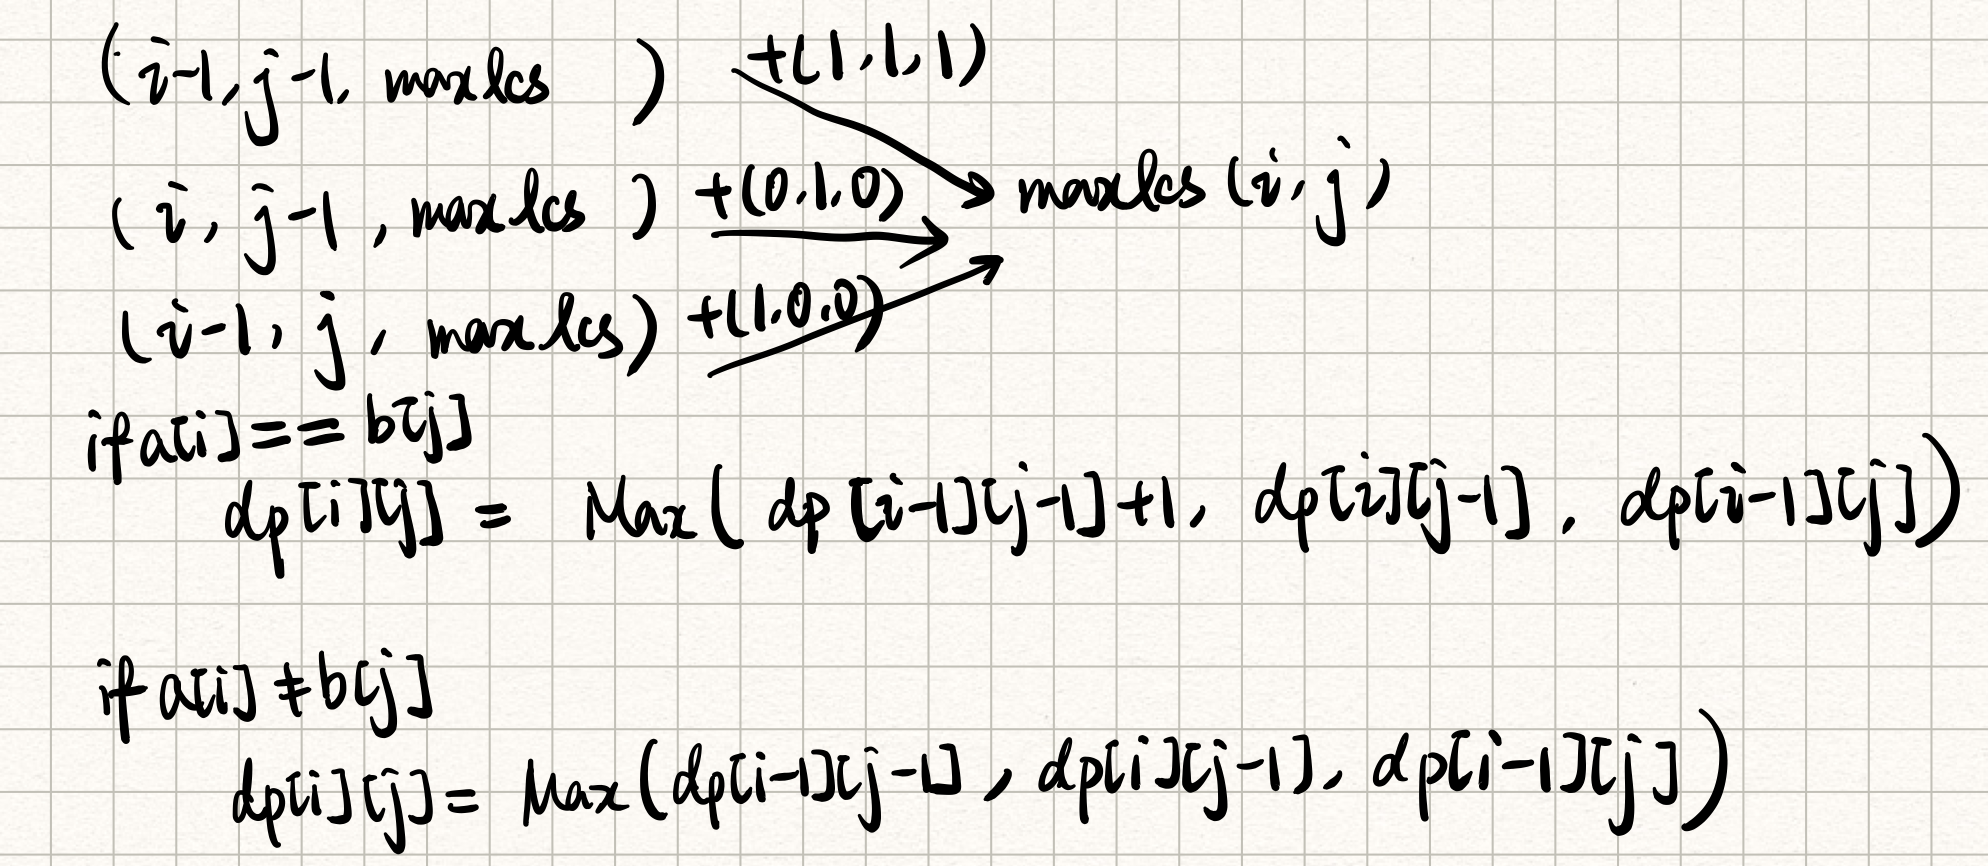 (i-1, j-1, maxlcs ) +(1,1,1)
(i, j-1, maxlcs ) +(0,1,0) maxlcs (i,j)
(i-1, j, maxlcs) +(1,0,0)
if a[i]== b[j]
dp[i][j] = Max( dp[i-1][j-1]+1, dp[i][j-1], dp[i-1][j])
if a[i] ≠ b[j]
dp[i][j]= Max(dp[i-1][j-1], dp[i][j-1], dp[i-1][j])